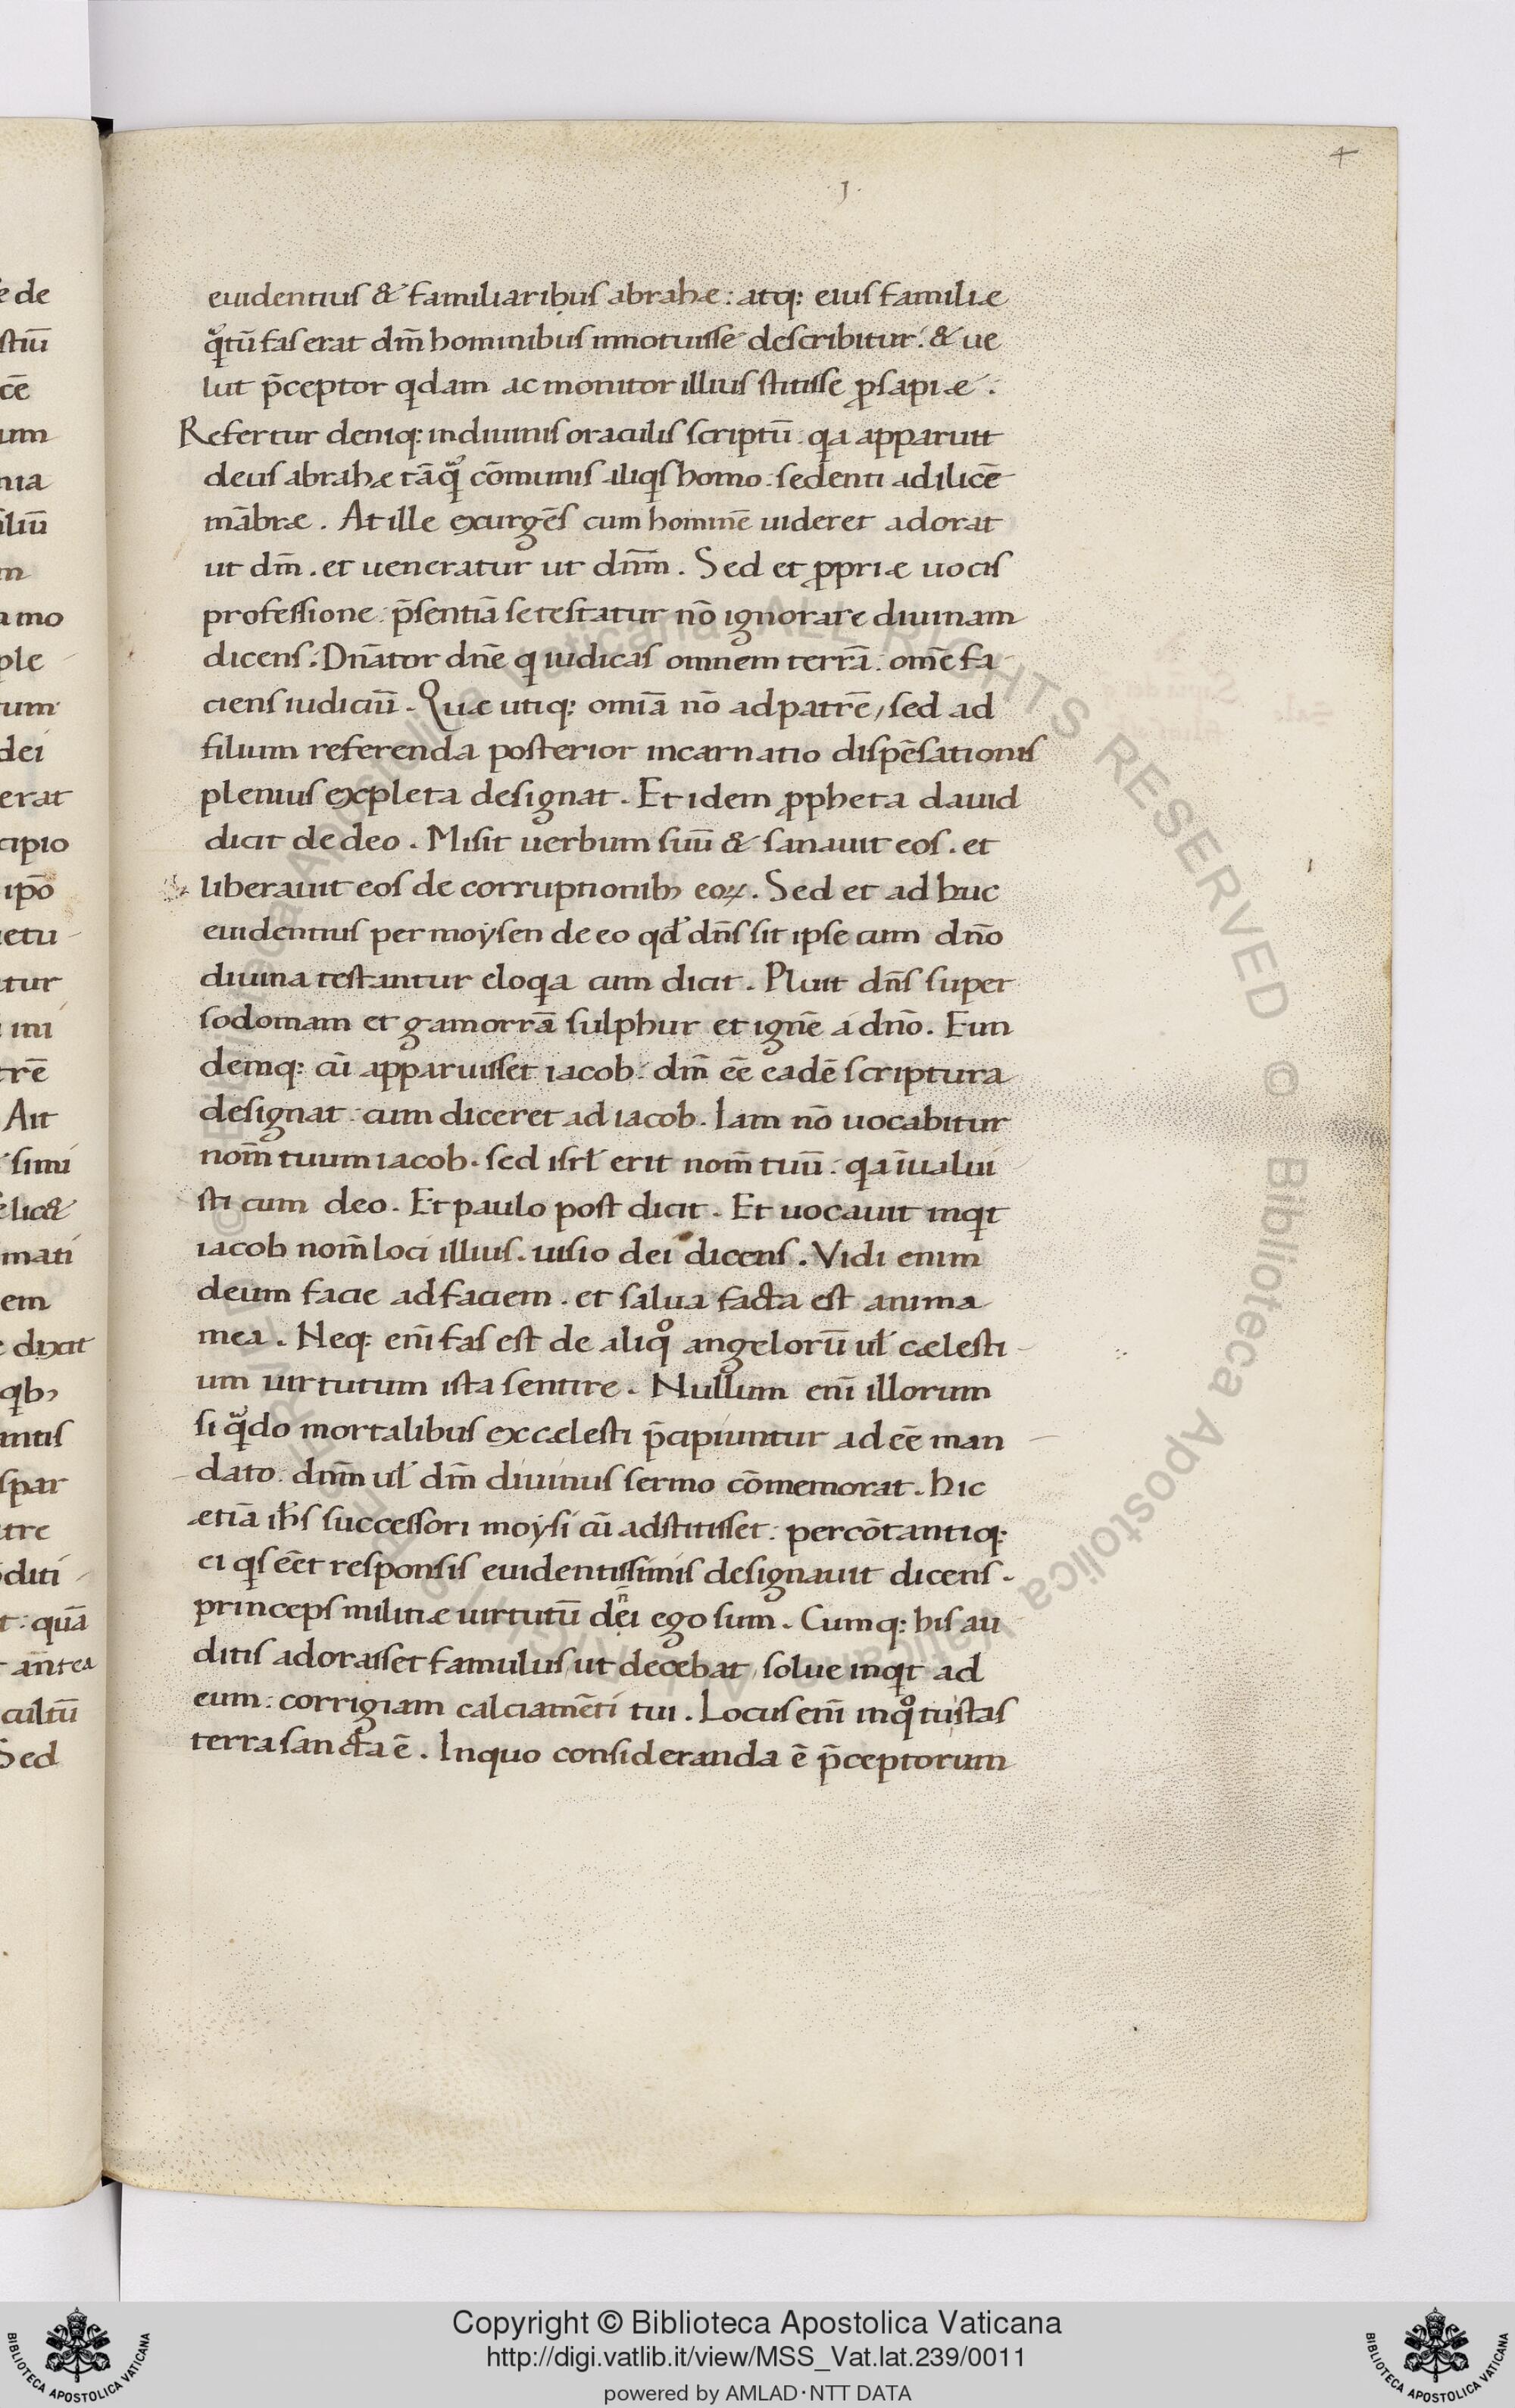 4
.I.
euidentius & familiaribus abrahæ: atq: eius familiæ
qͦtū fas erat dm̄ hominibus innotuisse describitur. & ue
lut p̄ceptor qdam ac monitor illius stitisse ꝓsapiæ.
Refertur deniq: in diuinis oraculis scriptū. qa apparuit
deus abrahæ tāqͣ cōmunis aliqis homo. sedenti ad ilicē
mābræ. At ille exurgēs cum hominē uideret adorat
ut dm̄. et ueneratur ut dnm̄. Sed et ꝓpriæ uocis
professione. p̄sentiā se testatur nō ignorare diuinam
dicens. Dn̄ator dn̄e qi iudicas omnem terrā. om̄e fa
ciens iudiciū. Quæ utiq: om̄ia nō ad patrē, sed ad
filium referenda posterior incarnatio dispēsationis
plenius expleta designat. Et idem ꝓpheta dauid
dicit de deo. Misit uerbum suū & sanauit eos. et
liberauit eos de corruptionib; eoꝝ. Sed et ad huc
euidentius per moysen de eo qd' dn̄s sit ipse cum dn̄o
diuina testantur eloqa cum dicit. Pluit dn̄s super
sodomam et gamorrā sulphur et ignē a dn̄o. Eun
demq: cū apparuisset iacob. dm̄ eē eadē scriptura
designat. cum diceret ad iacob. Iam nō uocabitur
nom̄ tuum iacob. sed isrl' erit nom̄ tuū. qa īualui
sti cum deo. Et paulo post dicit. Et uocauit inqit
iacob nom̄ loci illius. uisio dei dicens. Vidi enim
deum facie ad faciem. et salua facta est anima
mea. Neq: eni᷄ fas est de aliqͦ angelorū ul' cælesti
um uirtutum ista sentire. Nullum enī illorum
si qͣdo mortalibus ex cælesti p̄cipiuntur adeē man
dato. dnm̄ ul' dm̄ diuinus sermo cōmemorat. hic
ætiā ih̄s successori moysi cū adstitisset. percōtantiq:
ei qis eēt responsis euidentissimis designauit dicens.
princeps militiæ uirtutū dei ego sum. Cumq: his au
ditis adorasset famulus, ut decebat, solue inqit ad
eum: corrigiam calciamēti tui. Locus enī in qͦ tu stas
terra sancta ē. In quo consideranda ē p̄ceptorum
Copyright © Biblioteca Apostolica Vaticana
http://digi.vatlib.it/view/MSS_Vat.lat.239/0011
powered by AMLAD·NTT DATA